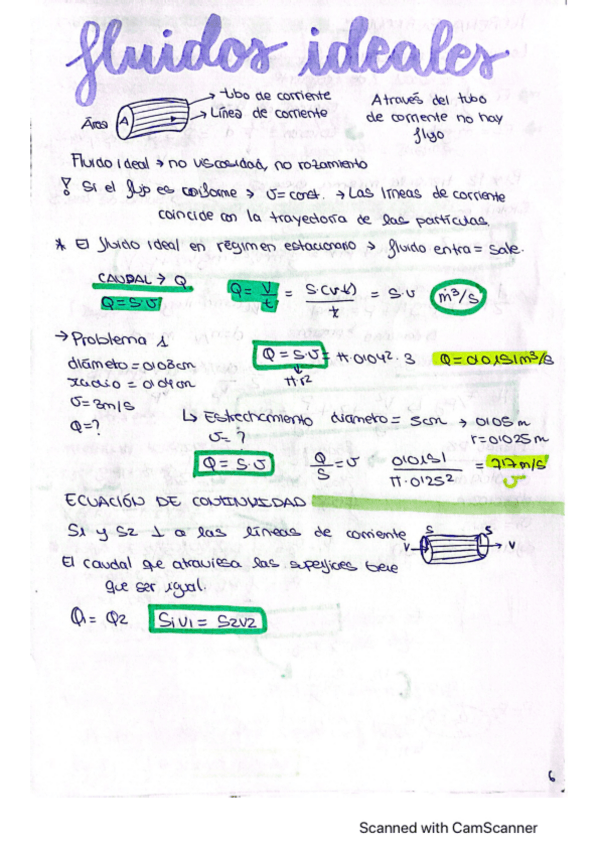 fluidos ideales
→ tubo de corriente
→ Línea de corriente
Área A
A través del tubo
de corriente no hay
flujo
Fluido ideal → no viscosidad, no rozamiento
! Si el flujo es uniforme → v = const. → Las líneas de corriente
coincide con la trayectoria de las partículas.
* El fluido ideal en régimen estacionario → fluido entra = sale.
CAUDAL → Q
Q = S·v
Q = V/t = S·(v·t)/t = S·v m³/s
→ Problema 1
diámetro = 0'08cm
radio = 0'04cm
v = 3m/s
Q = ?
Q = S·v = π·0'04²·3 Q = 0'0151m³/s
π·r²
↳ Estrechamiento diámetro = 5cm → 0'05m
r = 0'025m
v = ?
Q = S·v Q/S = v 0'0151/π·0'125² = 7'7m/s
v
ECUACIÓN DE CONTINUIDAD
S1 y S2 ⊥ a las líneas de corriente
S S
V V
El caudal que atraviesa las superficies tiene
que ser igual.
Q1 = Q2 S1V1 = S2V2
6
Scanned with CamScanner